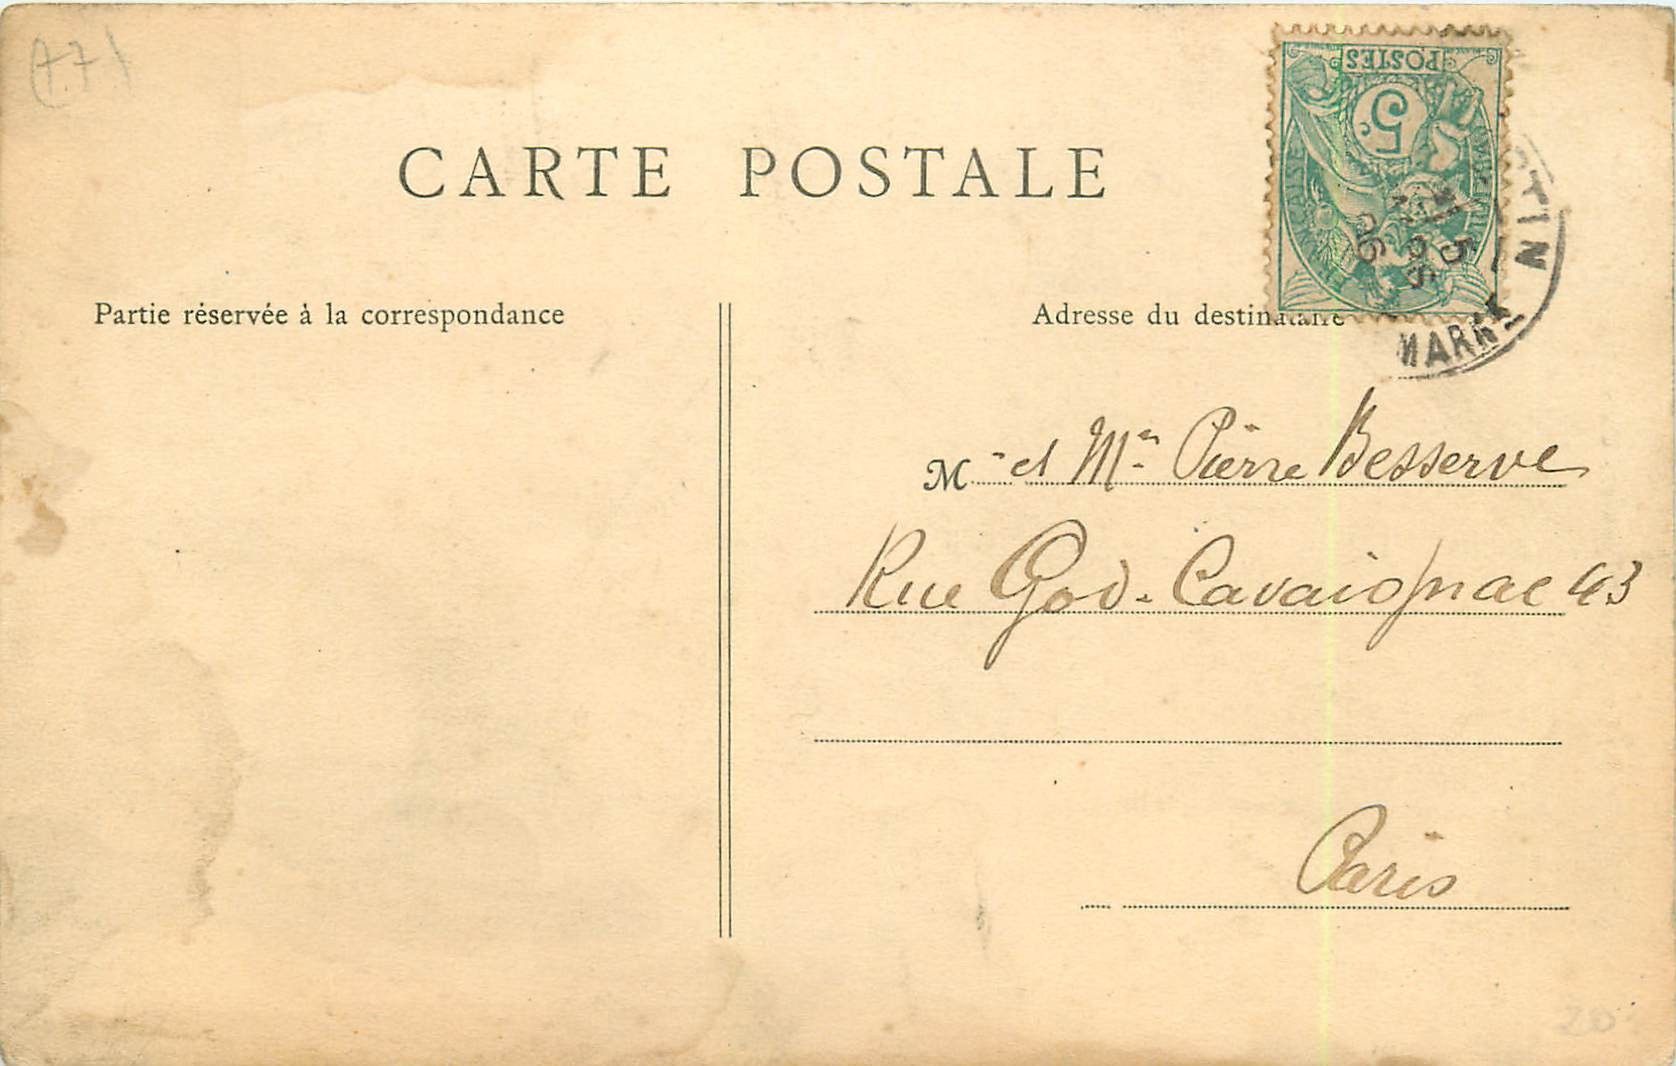 (77)
POSTES
5c
CARTE POSTALE
5
06
MARNE
Partie réservée à la correspondance
Adresse du destinataire
M - et Mme Pierre Besserve
Rue God. Cavaignac 43
Paris
20